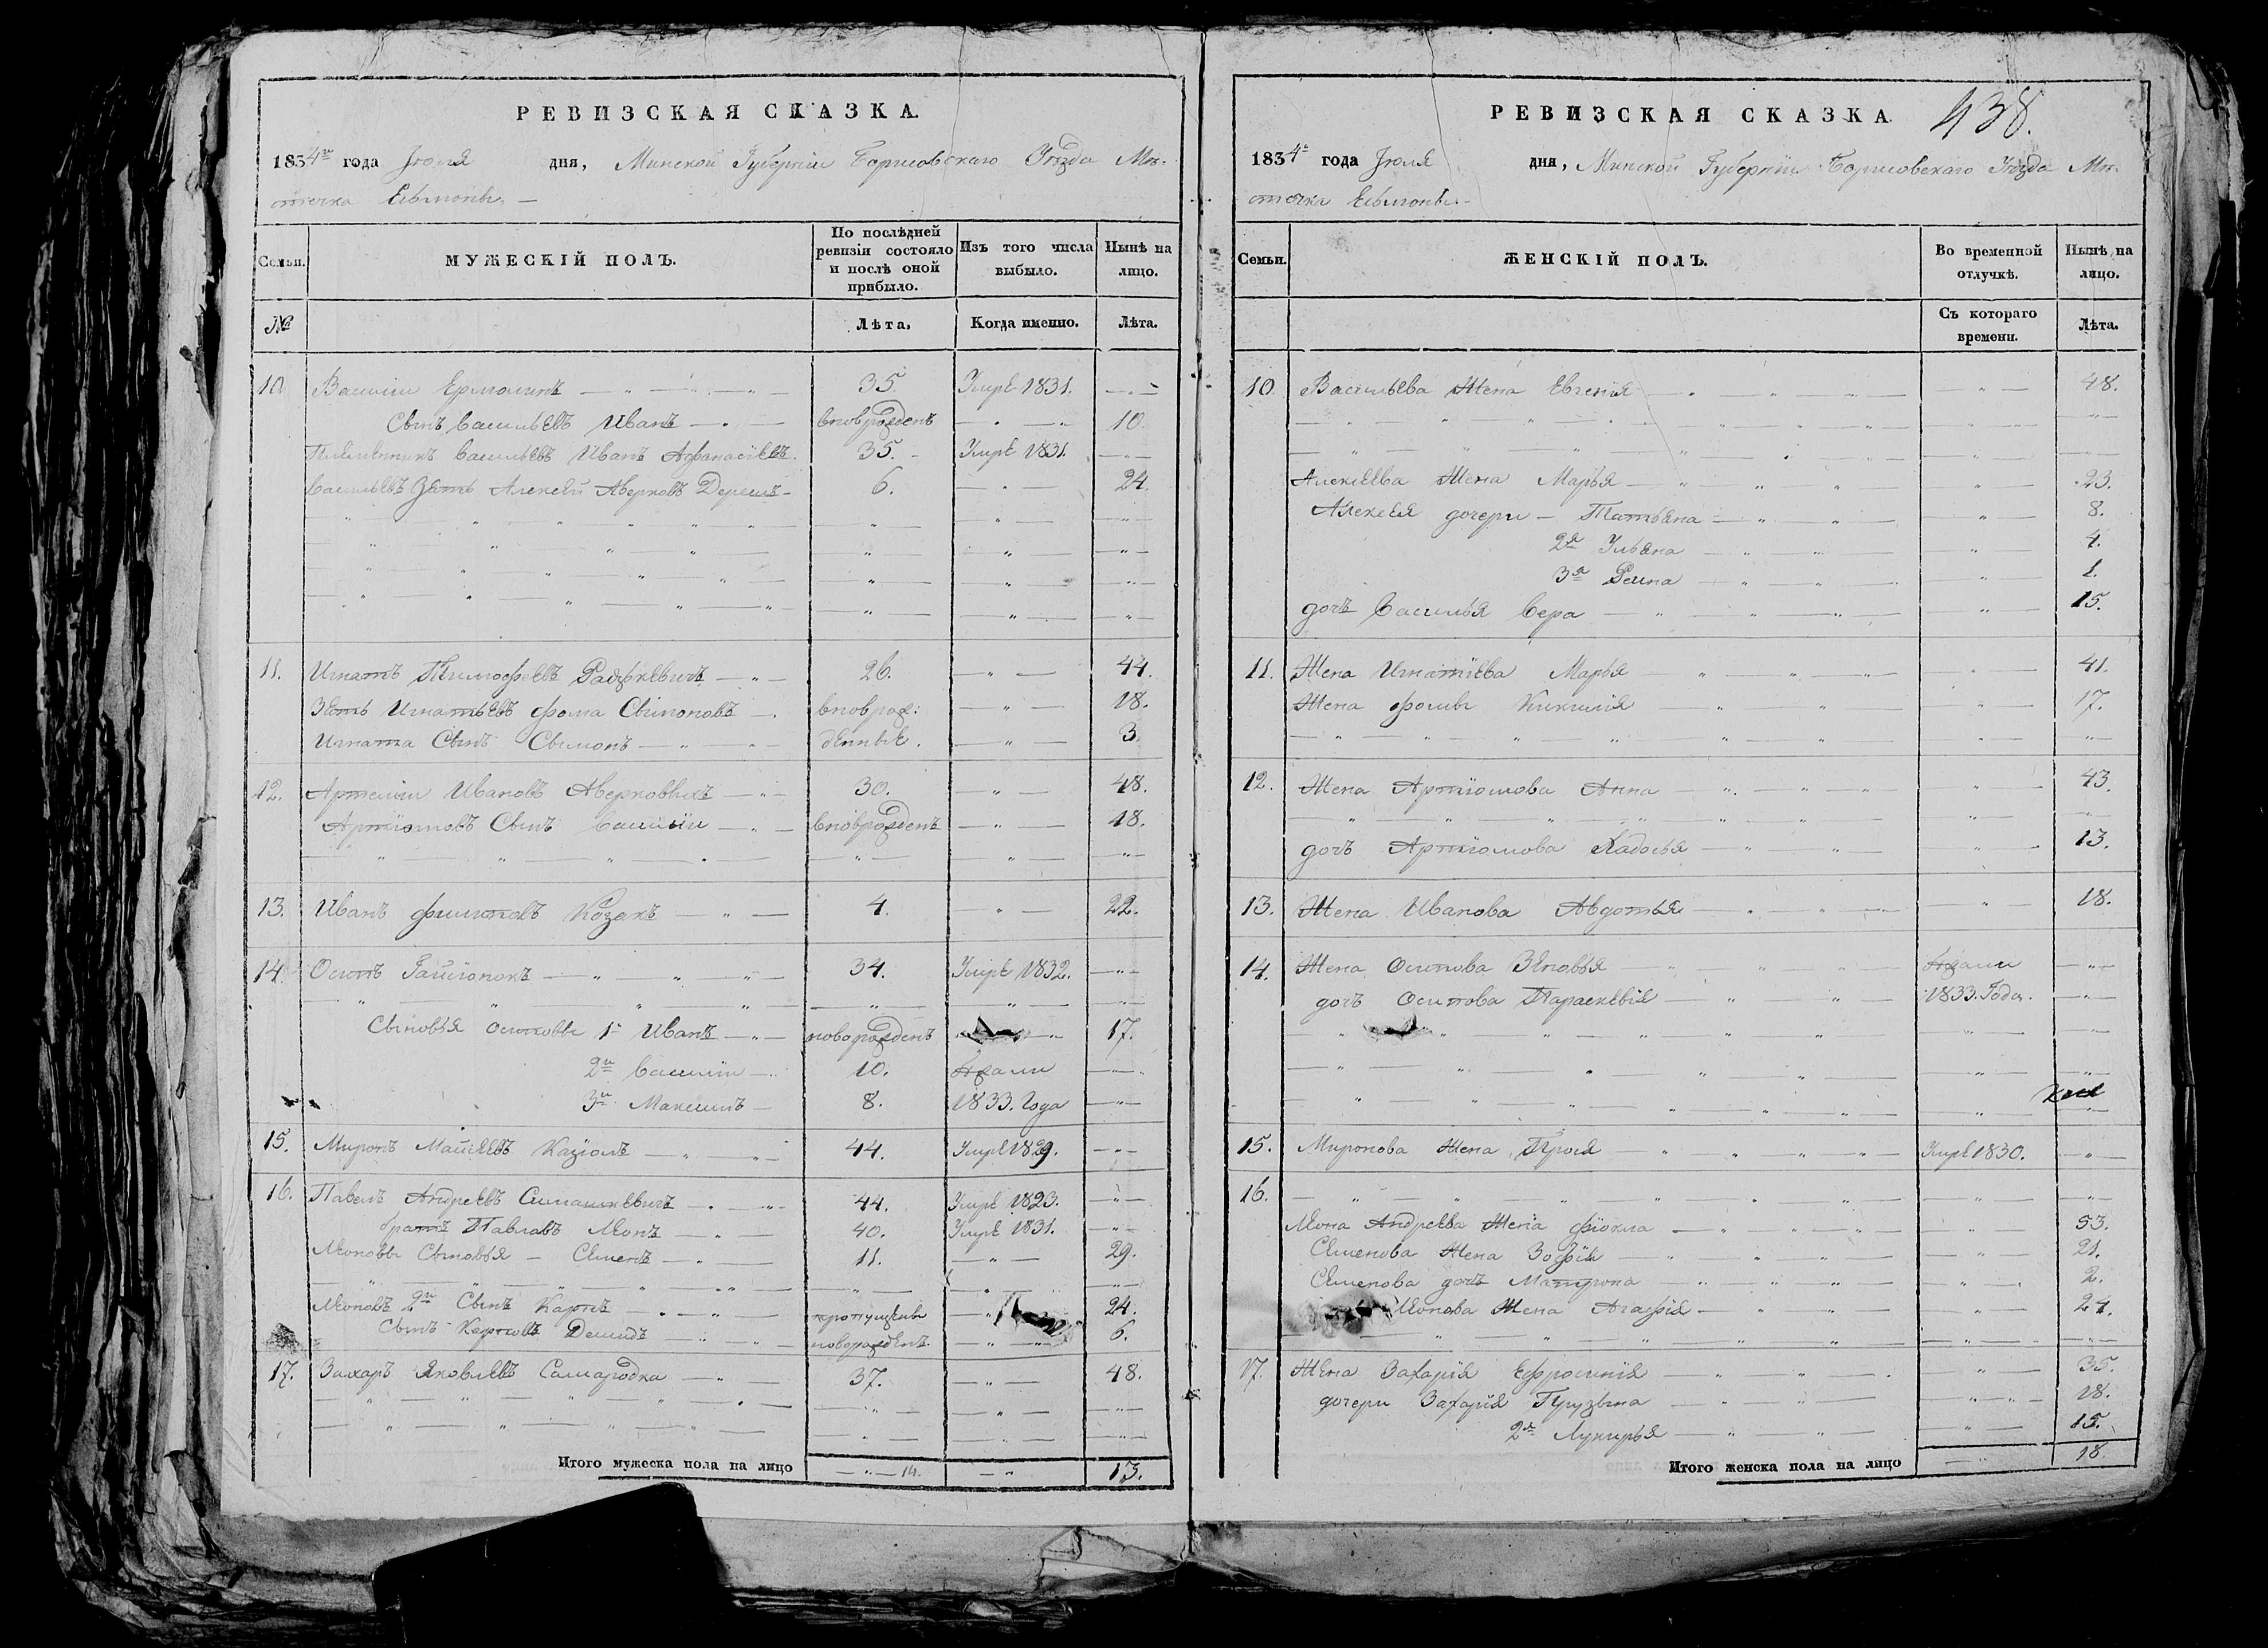 РЕВИЗСКАЯ СКАЗКА.
1834го года Іюля дня, Минской Губерніи Борисовскаго Уѣзда Мѣ-
стечка
Семьи.
МУЖЕСКІЙ ПОЛЪ.
По послѣдней ревизіи состояло и послѣ оной прибыло.
Изъ того числа выбыло.
Нынѣ на лицо.
№
Лѣта.
Когда именно.
Лѣта.
10 Василій Ермолинъ 35 Умре 1831.
Сынъ Васильевъ Иванъ вноврожденъ 10.
Племянникъ Васильевъ Иванъ Афанасіевъ 35. Умре 1831.
Васильевъ Зять Алексей Аверковъ 6. 24.
11. Игнатъ Тимофеевъ Радкевичъ 26. 44.
Зять Игнатьевъ фома Свимоновъ вноврож: 18.
Игната Сынъ Свимонъ денные. 3
12. Артемій Ивановъ 30. 48.
Артіомовъ Сынъ Василіи вноврожденъ 18.
13. Иванъ филиповъ Козакъ 4. 22.
14. Осипъ Гайсіонокъ 34. Умре 1832.
Сыновья Осиповы 1й Иванъ новорожденъ 17.
2й Василіи 10. Бежали
3й Максимъ 8. 1833. Года
15. Миронъ Козіолъ 44. Умре 1829.
16. Павелъ Андреевъ Симашкевичъ 44. Умре 1823.
братъ Павловъ Леонъ 40. Умре 1831.
Леоновы Сыновья Семенъ 11. 29.
Леоновъ 2й Сынъ Карпъ пропущены 24.
Сынъ Карповъ Демидъ новорожденъ 6.
17. Захаръ Яковлевъ Самародка 37. 48.
Итого мужеска пола на лицо 14. 13.
РЕВИЗСКАЯ СКАЗКА
438.
1834го года Іюля дня, Минской Губерніи Борисовскаго Уѣзда Мѣ-
стечка
Семьи.
ЖЕНСКІЙ ПОЛЪ.
Во временной отлучкѣ.
Нынѣ на лицо.
Съ котораго времени.
Лѣта.
10. Васильева Жена Евгенія 48.
Алексеева Жена Марья 23.
Алексея дочери Татьяна 8.
2я Ульяна 4.
3я 1.
дочъ Василья Вера 15.
11. Жена Игнатіева Марья 41.
Жена фомы 17.
12. Жена Артіомова Анна 43.
дочъ Артіомова Хадосья 13.
13. Жена Иванова Авдотья 18.
14. Жена Осипова Зеновья Бежали
дочъ Осипова Параскевія 1833. Года.
15. Миронова Жена Умре 1830.
16.
Леона Андреева Жена фіокла 53.
Семенова Жена Зофія 21.
Семенова дочъ Матрона 2.
Леонова Жена Агафія 24.
17. Жена Захарія Ефросинія 35.
дочери Захарія 18.
2я Лукирья 15.
Итого женска пола на лицо 18